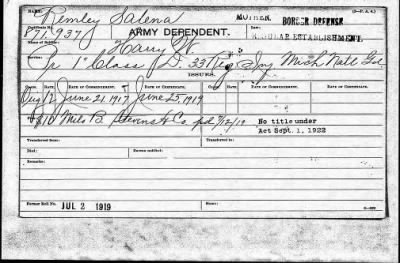 NAME: Remley Salena MOTHER. BORDER DEFENSE (3—P. A. 4.)
Certificate No. 871,937 ARMY DEPENDENT. REGULAR ESTABLISHMENT.
Name of Soldier: Harry W.
Service: Pr 1" Class D 33 Reg Inf Mich Natl Gd
ISSUES.
CLASS. RATE. DATE OF COMMENCEMENT. DATE OF CERTIFICATE. CLASS. RATE. DATE OF COMMENCEMENT. DATE OF CERTIFICATE.
Aug 12 June 21, 1917 June 25, 1919
$10 Milo B. Stevens & Co. pd 7/12/19 No title under
Act Sept. 1, 1922
Transferred from: Transferred to:
Died: Bureau notified:
Remarks:
Former Roll No. JUL 2 1919